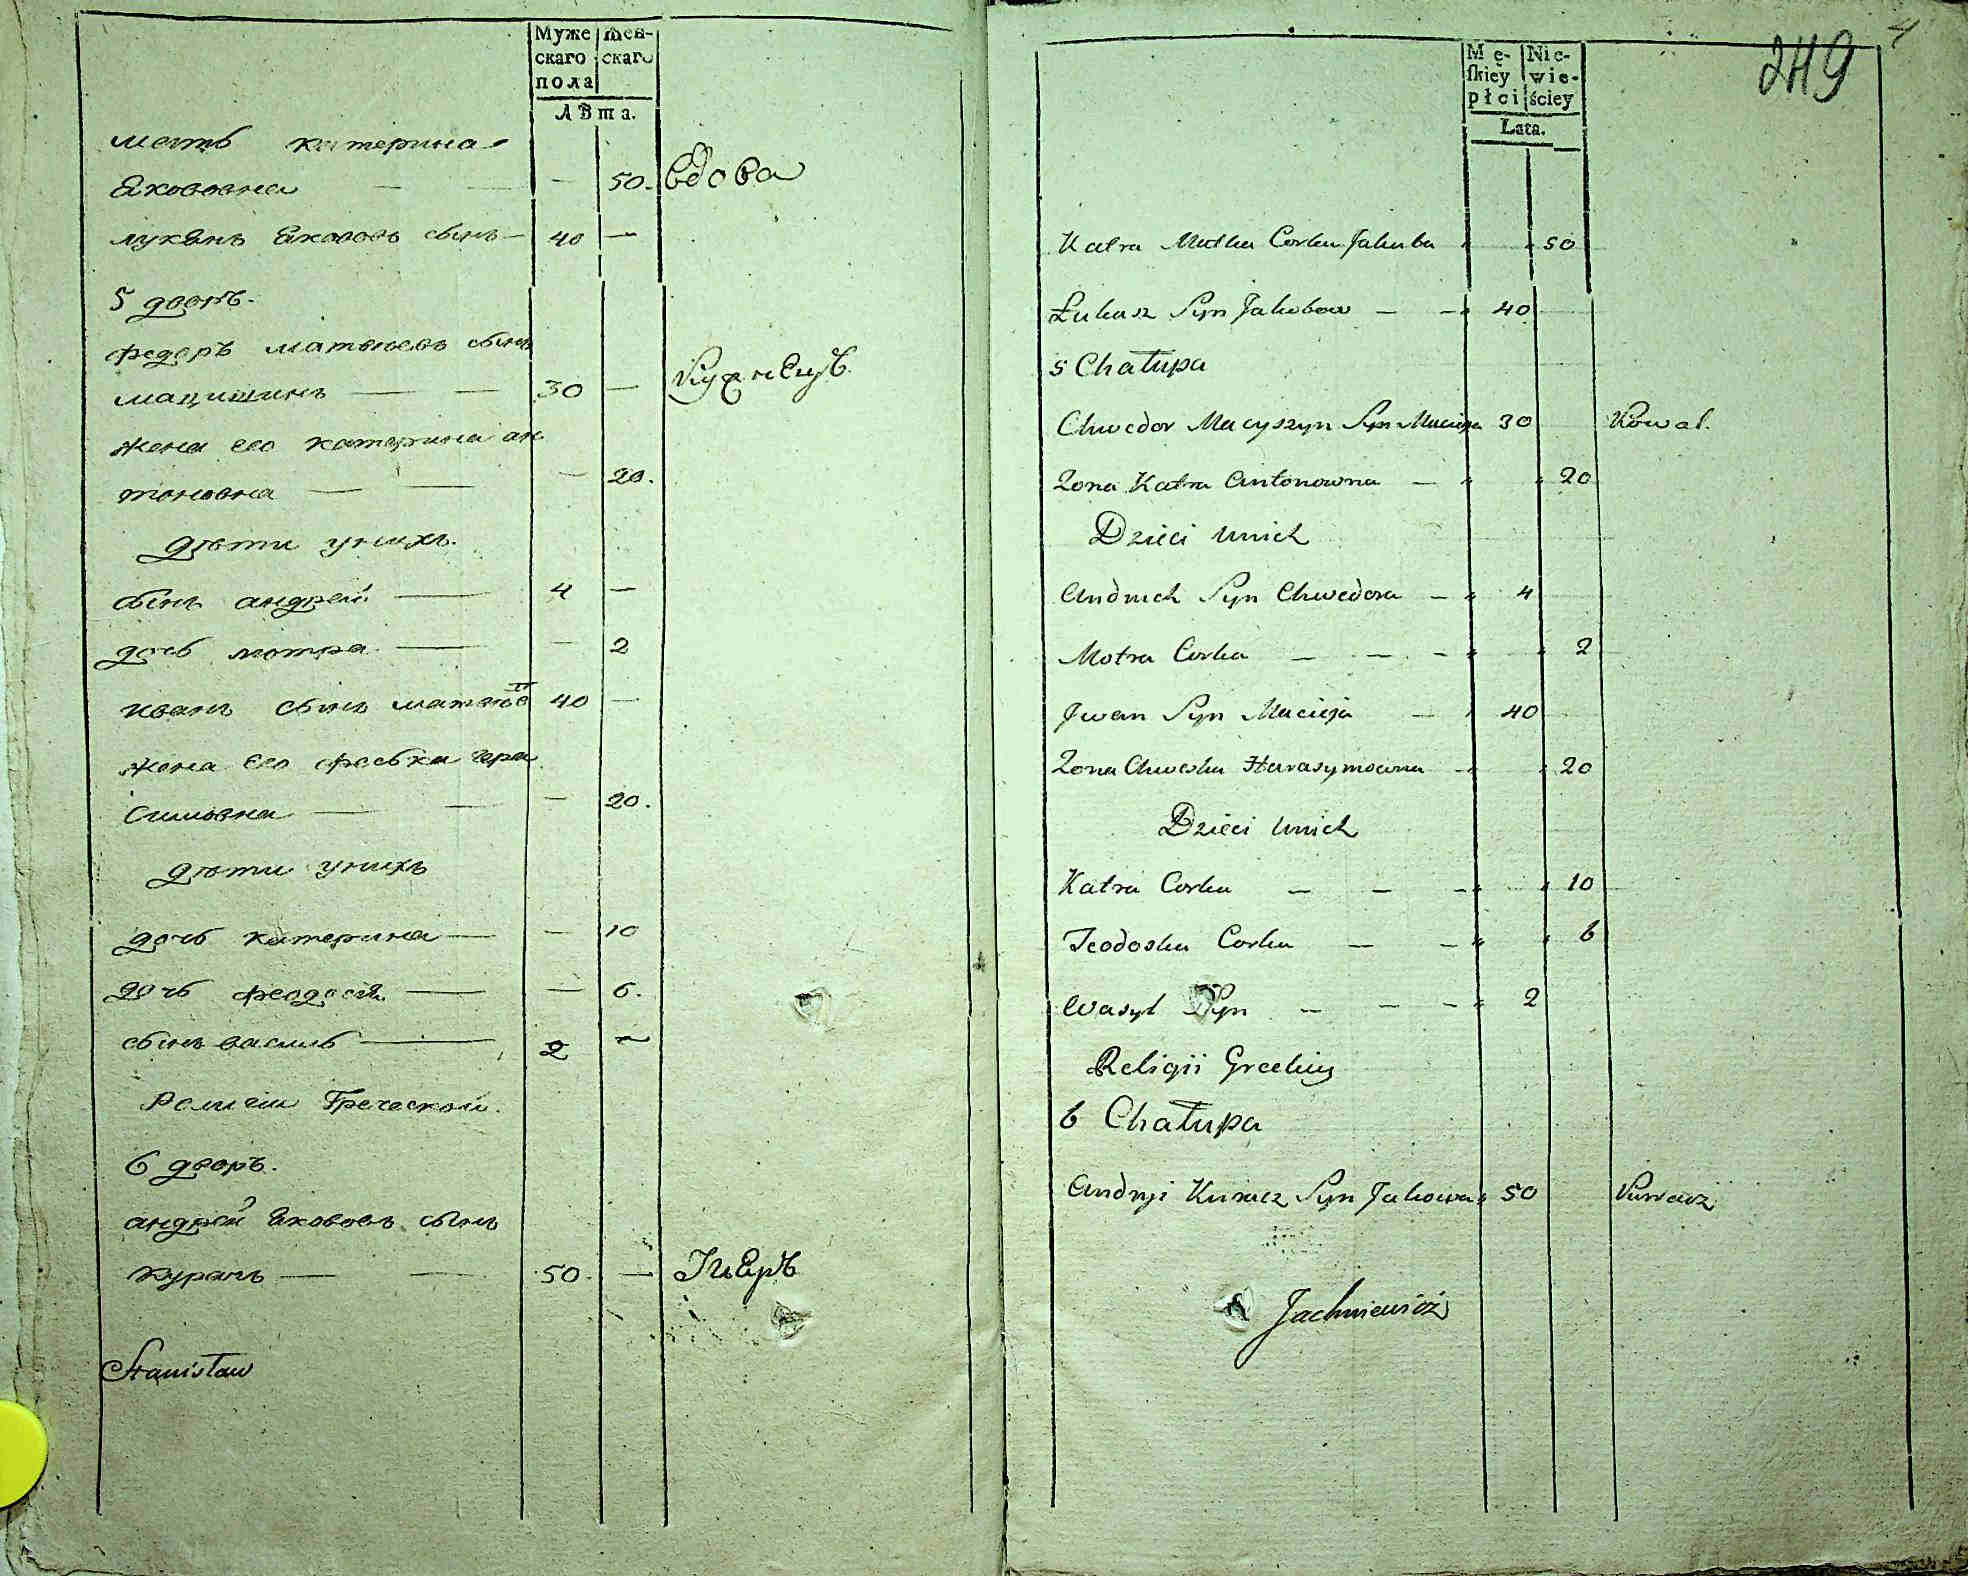 Муже
скаго
пола
Жен-
скаго
лѣта.
мать катерина
Якововна — — — 50. вдова
лукянъ Якововъ сынъ — 40 —
5 дворъ.
федоръ матвѣевъ сынъ
мацишинъ — — 30 —
жена его катерина ан
тоновна — — — 20.
дѣти унихъ.
сынъ андрей — 4 —
дочь мотра — — 2
иванъ сынъ матвѣе 40 —
жена его феська гера
симовна — — — 20.
дѣти унихъ
дочь катерина — — 10
дочь феодосія — — 6.
сынъ василь — 2 —
Религии Греческой.
6 дворъ.
андрей Якововъ сынъ
курачъ — — 50. —
Stanisław
249
4
Mę-
skiey
płci
Nie-
wie-
ściey
Lata.
Katra Matka Corka Jakuba 50
Łukasz Syn Jakobow — — 40
5 Chałupa
Chwedor Macyszyn Syn Macieja 30 Kowal.
Zona Katra Antonowna — 20
Dzieci unich
Andruch Syn Chwedora — 4
Motra Corka — — — 2
Jwan Syn Macieja — 40
Zona Chweska Harasymowna — 20
Dzieci unich
Katra Corka — — — 10
Teodoska Corka — — 6
Wasyl Syn — — — 2
Religii Greckiey
6 Chałupa
Andryi Kuracz Syn Jakowa 50
Jachniewicz